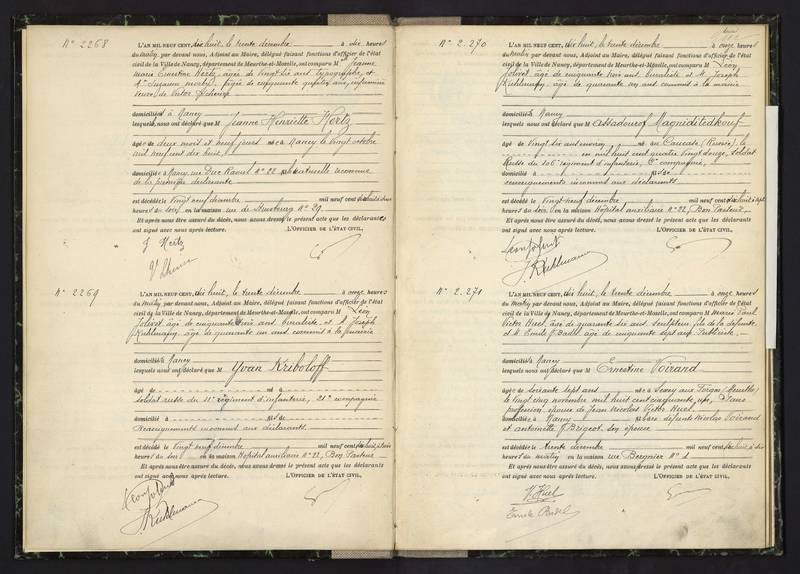 N° 2268
L'AN MIL NEUF CENT, dix huit, le trente décembre à dix heures
du matin, par devant nous, Adjoint au Maire, délégué faisant fonctions d'officier de l'état
civil de la Ville de Nancy, département de Meurthe-et-Moselle, ont comparu M Jeanne
Marie Ernestine Hertz, âgée de vingt six ans, typographe, et
Mme Suzanne âgée de cinquante quatre ans, infirmière
domiciliés à Nancy
lesquels nous ont déclaré que M Jeanne Henriette Hertz
âgée de deux mois et neuf jours née à Nancy le vingt octobre
mil neuf cent dix huit,
domiciliée à Nancy, rue N° 22, naturelle reconnue
de la première déclarante
est décédée le vingt neuf décembre mil neuf cent dix huit à
heures du soir en la maison rue de Strasbourg N° 29
Et après nous être assuré du décès, nous avons dressé le présent acte que les déclarantes
ont signé avec nous après lecture. L'OFFICIER DE L'ÉTAT CIVIL,
J Hertz
N° 2269
L'AN MIL NEUF CENT, dix huit, le trente décembre à onze heures
du matin, par devant nous, Adjoint au Maire, délégué faisant fonctions d'officier de l'état
civil de la Ville de Nancy, département de Meurthe-et-Moselle, ont comparu M Léon
Jolivet âgé de cinquante trois ans, buraliste, et M. Joseph
Kuhlmann, âgé de quarante un ans commis à la mairie
domiciliés à Nancy
lesquels nous ont déclaré que M Yvan Kriboloff
âgé de né à
soldat russe du 11e régiment d'infanterie, 21e compagnie
domicilié à fils de
Renseignements inconnus aux déclarants.
est décédé le vingt neuf décembre mil neuf cent dix huit à
heures du soir en la maison Hôpital auxiliaire N° 22, Bon Pasteur
Et après nous être assuré du décès, nous avons dressé le présent acte que les déclarants
ont signé avec nous après lecture. L'OFFICIER DE L'ÉTAT CIVIL,
J. Kuhlmann
N° 2.270
L'AN MIL NEUF CENT, dix huit, le trente décembre à onze heures
du matin, par devant nous, Adjoint au Maire, délégué faisant fonctions d'officier de l'état
civil de la Ville de Nancy, département de Meurthe-et-Moselle, ont comparu M Léon
Jolivet âgé de cinquante trois ans, buraliste et M. Joseph
Kuhlmann, âgé de quarante un ans commis à la mairie
domiciliés à Nancy
lesquels nous ont déclaré que M Assadourof Magniditedkouf
âgé de vingt six ans environ né au Caucase (Russie), le
en mil huit cent quatre vingt douze, soldat
Russe du 106e régiment d'infanterie, 6e compagnie,
domicilié à fils de
renseignements inconnus aux déclarants
est décédé le vingt neuf décembre mil neuf cent dix huit à sept
heures du soir en la maison Hôpital auxiliaire N° 22, Bon Pasteur
Et après nous être assuré du décès, nous avons dressé le présent acte que les déclarants
ont signé avec nous après lecture. L'OFFICIER DE L'ÉTAT CIVIL,
J. Kuhlmann
N° 2.271
L'AN MIL NEUF CENT, dix huit, le trente décembre à onze heures
du matin, par devant nous, Adjoint au Maire, délégué faisant fonctions d'officier de l'état
civil de la Ville de Nancy, département de Meurthe-et-Moselle, ont comparu M Marie Paul
Victor Huel, âgé de quarante six ans, sculpteur, fils de la défunte,
et M. Emile âgé de cinquante sept ans, Publiciste,
domiciliés à Nancy
lesquels nous ont déclaré que M Ernestine Voirand
âgée de soixante sept ans née à (Meurthe)
le vingt cinq novembre mil huit cent cinquante, sans
profession, épouse de Jean Nicolas Victor Huel,
domiciliée à Nancy, des défunts Nicolas Voirand
et Antoinette Brigeot, son épouse
est décédée le trente décembre mil neuf cent dix huit à dix
heures du matin en la maison rue Bergnier N° 1
Et après nous être assuré du décès, nous avons dressé le présent acte que les déclarants
ont signé avec nous après lecture. L'OFFICIER DE L'ÉTAT CIVIL,
V. Huel